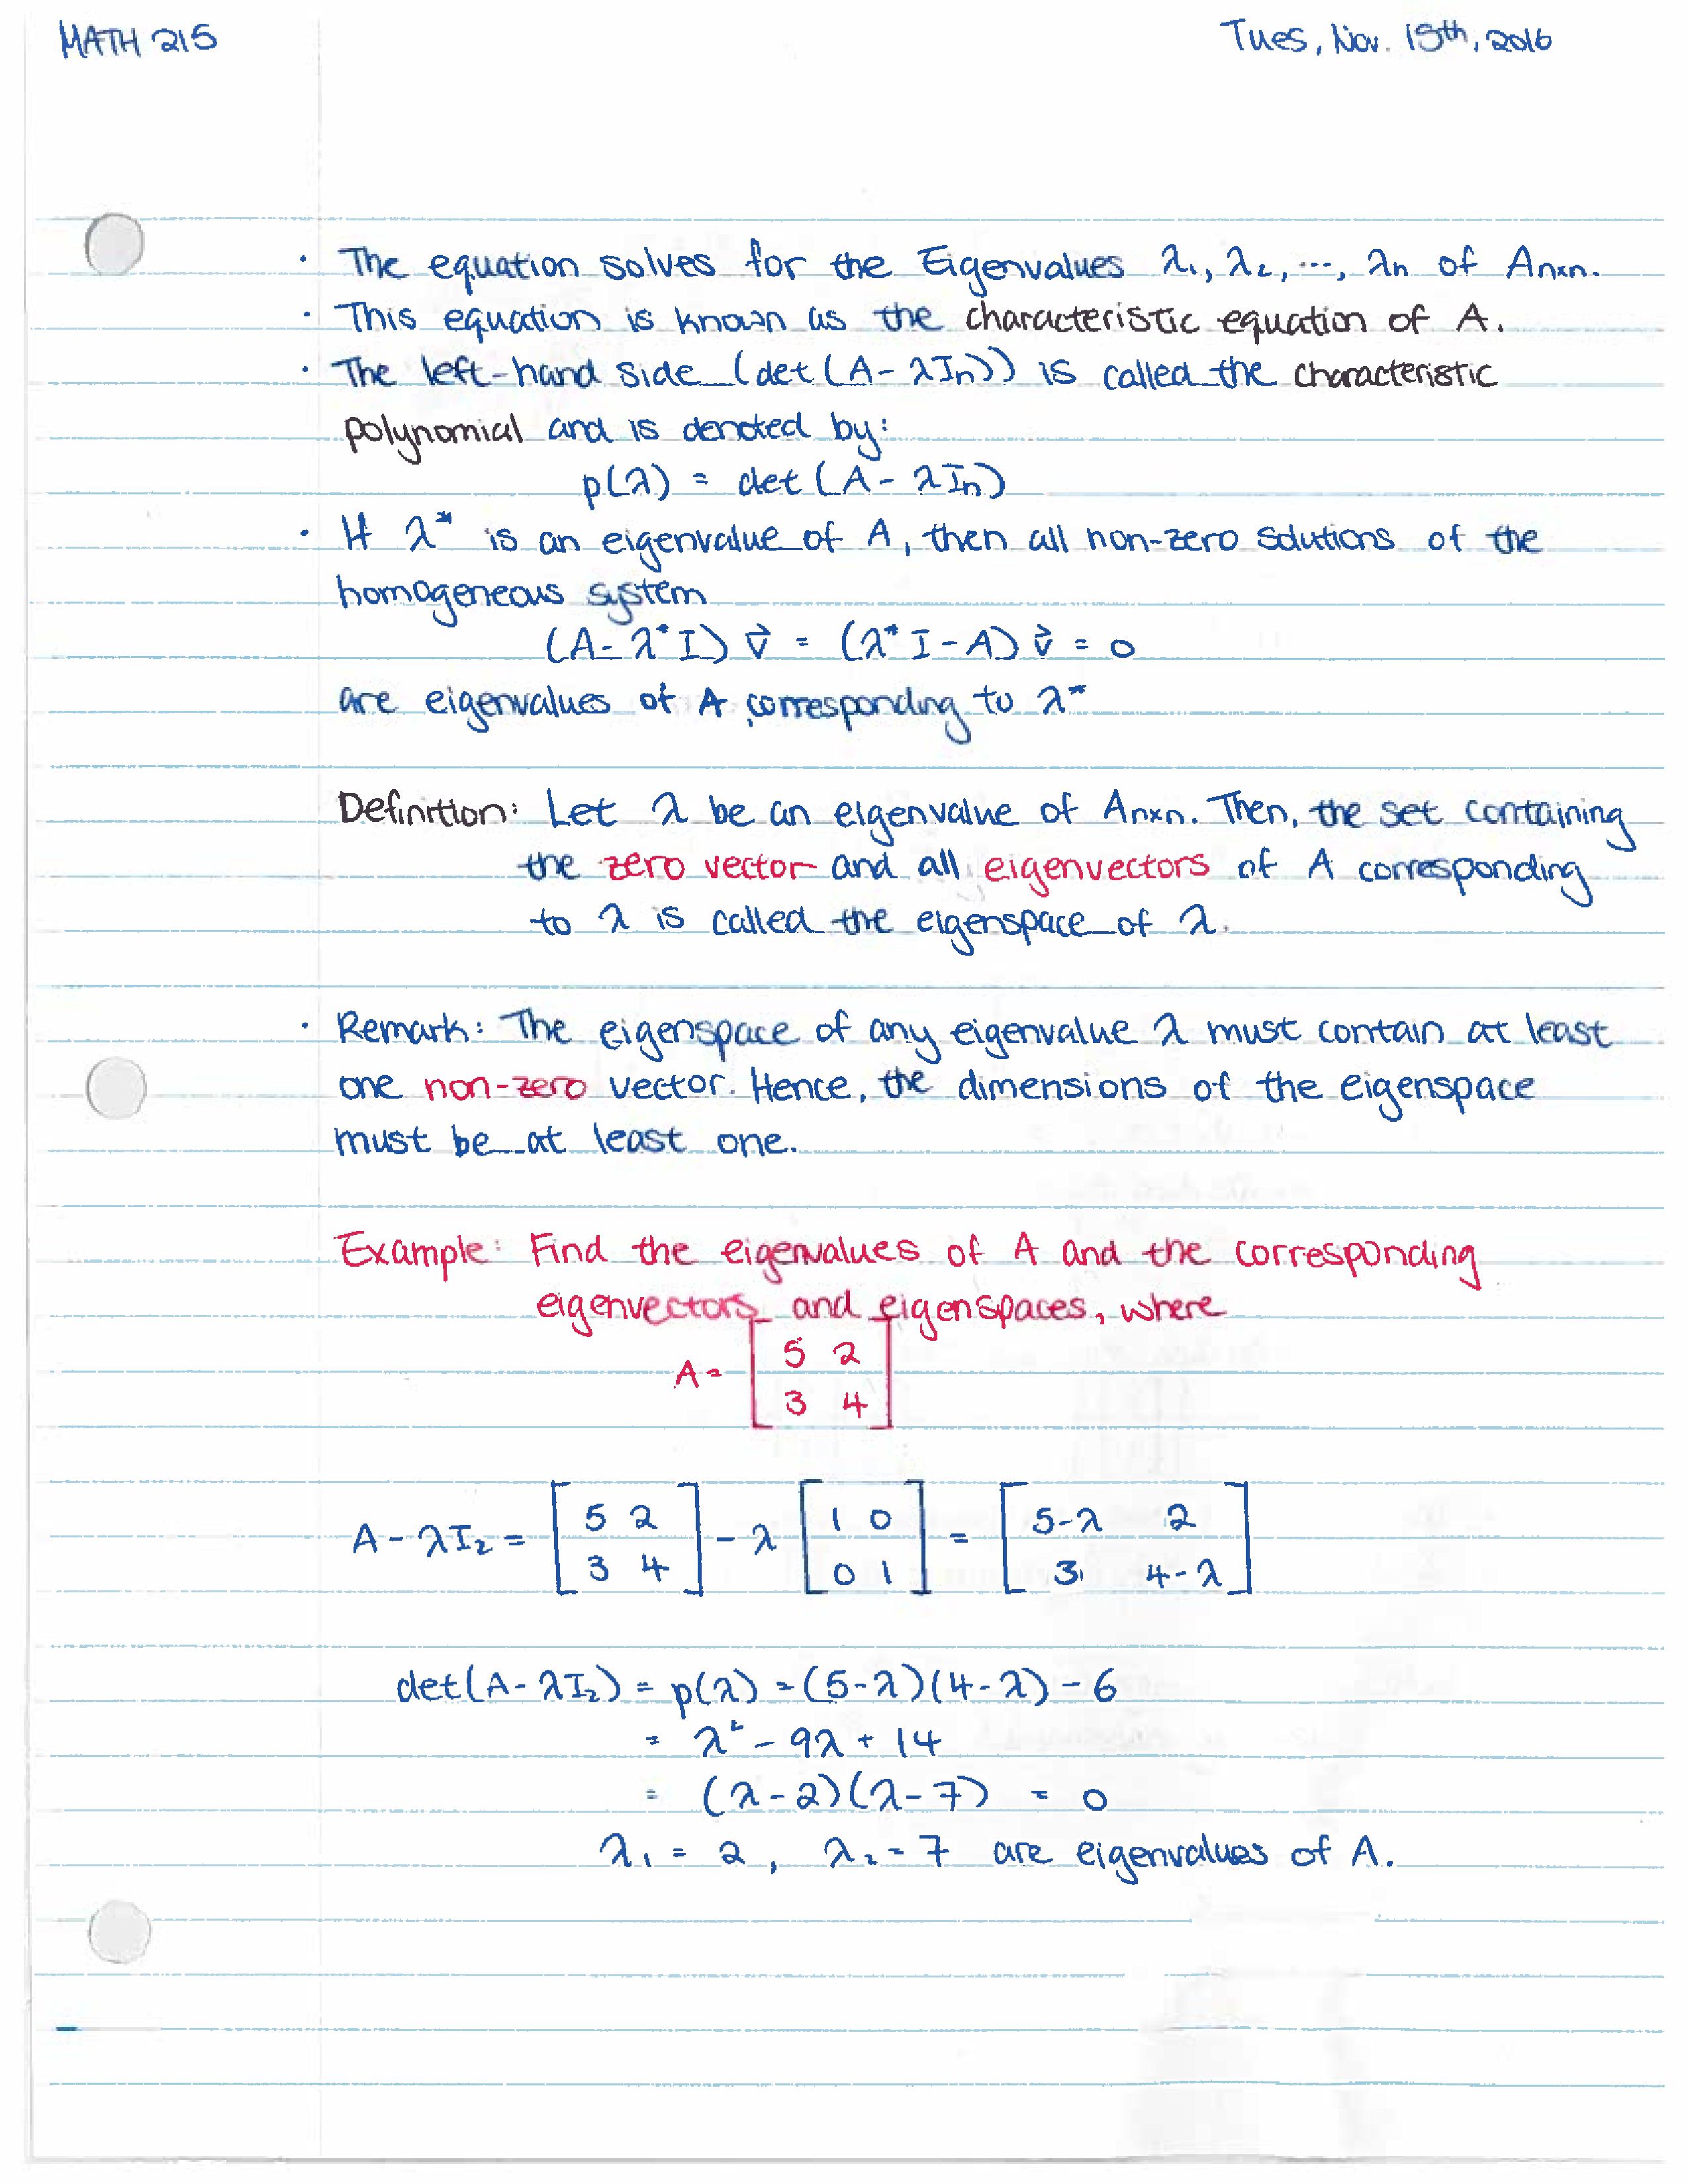 MATH 215
Tues, Nov. 15th, 2016
· The equation solves for the Eigenvalues λ₁, λ₂, ..., λn of Anxn.
· This equation is known as the characteristic equation of A.
· The left-hand side (det(A - λIn)) is called the characteristic
polynomial and is denoted by:
p(λ) = det(A - λIn)
· If λ* is an eigenvalue of A, then all non-zero solutions of the
homogeneous system
(A - λ*I) v⃗ = (λ*I - A) v⃗ = 0
are eigenvalues of A corresponding to λ*
Definition: Let λ be an eigenvalue of Anxn. Then, the set containing
the zero vector and all eigenvectors of A corresponding
to λ is called the eigenspace of λ.
· Remark: The eigenspace of any eigenvalue λ must contain at least
one non-zero vector. Hence, the dimensions of the eigenspace
must be at least one.
Example: Find the eigenvalues of A and the corresponding
eigenvectors and eigenspaces, where
A = [5 2
3 4]
A - λI₂ = [5 2 - λ [1 0 = [5-λ 2
3 4] 0 1] 3 4-λ]
det(A - λI₂) = p(λ) = (5-λ)(4-λ) - 6
= λ² - 9λ + 14
= (λ-2)(λ-7) = 0
λ₁ = 2, λ₂ = 7 are eigenvalues of A.